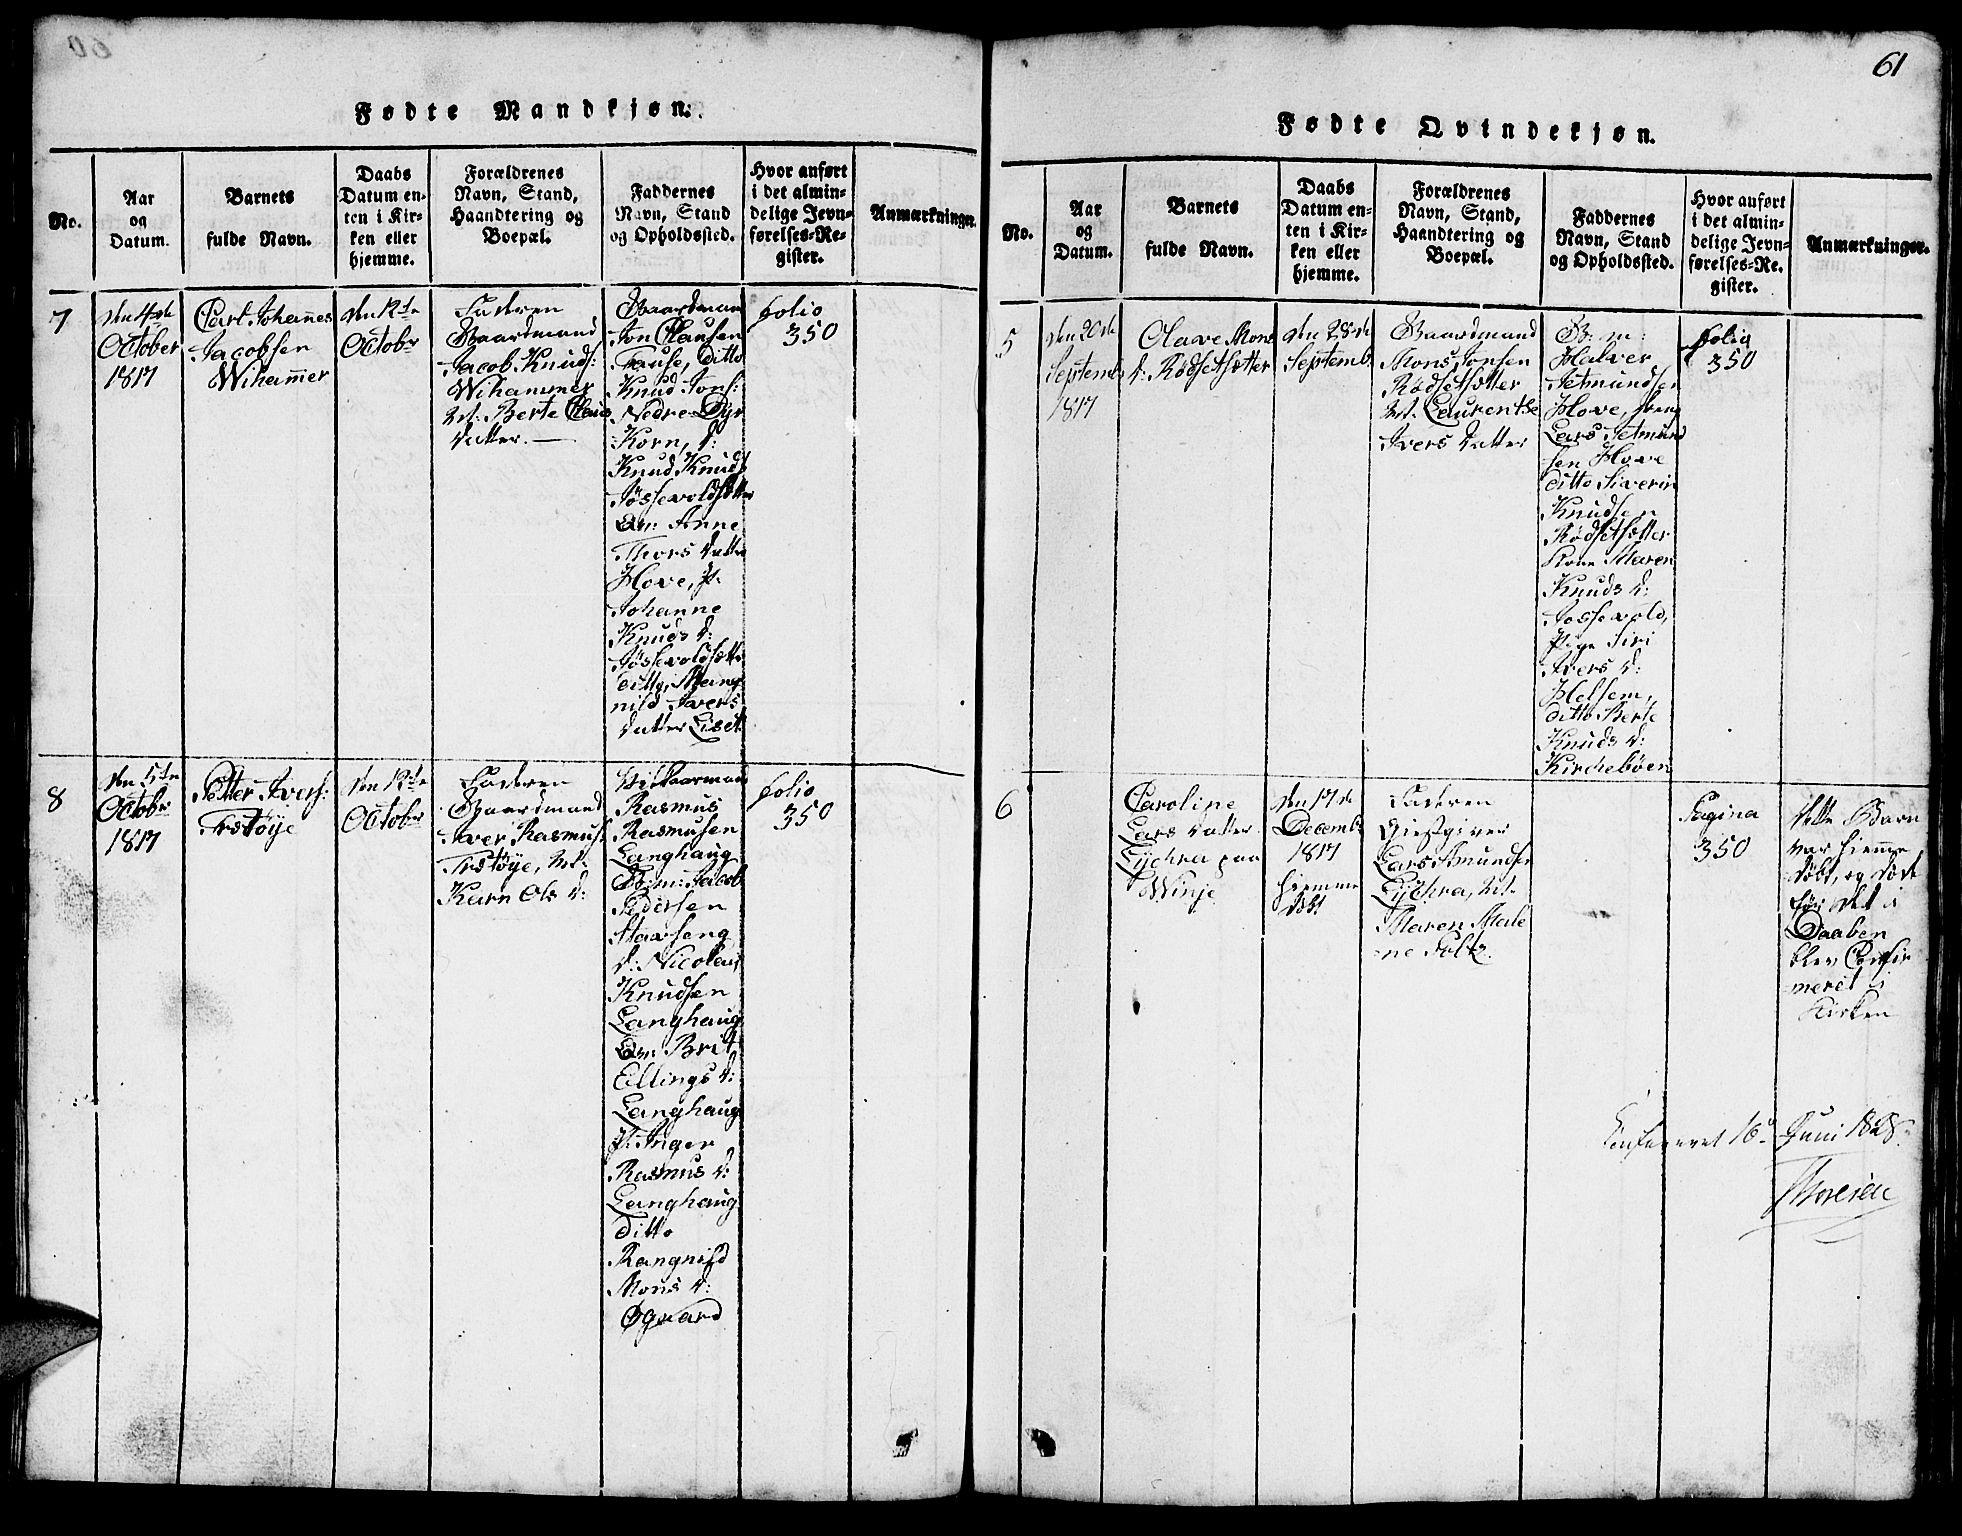 60
Fødte Mandkjøn.
No.
Aar
og
Datum.
Barnets
fulde Navn.
Daabs
Datum en-
ten i Kir-
ken eller
hjemme.
Forældrenes
Navn, Stand,
Haandtering og
Boepæl.
Faddernes
Navn, Stand
og Opholdssted.
Hvor anført
i det almin-
delige Jevn-
førelses-Re-
gister.
Anmærkninger
7
den 4de
October
1817
Carl Johannes
Jacobsen
Wihammer
den 12te
Octobr
Faderen
Gaardmand
Jacob Knuds:
Wihammer
M: Berte Claus
datter.
Gaardman
Jon Clausen
Fause, ditto
Knud Jons:
Nedre Dyr
Korn, d:
Knud Knuds
Jøssevoldsætter
Qv: Anne
Thors datter
Hove, P.
Johanne
Knuds d:
Jøssevoldsætt
ditto, Mang
nild Ivers
datter Liset
folio
350
8
den 5te
Octobr
1817
Petter Ivers:
Trstøye
den 12te
Octobr
Faderen
Gaardmand
Iver Rasmus:
Trstøye, M.
Karn Ols d:
Rasmus
Rasmusen
Langhaug
G: m: Jacob
Pedersen
Staxseng
d: Nicolaus
Knudsen
Langhaug
Qv: Brit
Ellings d:
Langhaug
P. Inger
Rasmus d:
Langhaug
ditto
Rangnild
Mons d:
Øgaard
folio
350
61
Fødte Qvindekjøn.
No.
Aar
og
Datum.
Barnets
fulde Navn.
Daabs
Datum en-
ten i Kir-
ken eller
hjemme.
Forældrenes
Navn, Stand,
Haandtering og
Boepæl.
Faddernes
Navn, Stand
og Opholdssted.
Hvor anført
i det almin-
delige Jevn-
førelses-Re-
gister.
Anmærkninger.
5
den 20de
Septembr
1817
Olave Mons
d: Rødsetsætter
den 28de
Septembr
Gaardmand
Mons Jonsen
Rødsetsætter
M. Laurentse
Ivers datter
G: m:
Halver
Jetmundsen
Hove, Dreng
Lars Jetmund
sen Hove
ditto Siverin
Knudsen
Rødsetsætter
Kone Maren
Knuds d:
Jossevold,
Pige Siri
Ivers d:
Helsem,
ditto Berte
Knuds d:
Kirchebøen
folio
350
6
Caroline
Lars datter
Lychra paa
Winje
den 17de
Decembr
1817
hjemme
døbt
Faderen
Giestgiver
Lars Amundsen
Lychra, M.
Maren Male
ne Foltz.
Pagina
350
dette Barn
var hjemme
døbt, og døde
før det i
Daaben
blev Confir
meret i
Kirken
16 Juni 1828.